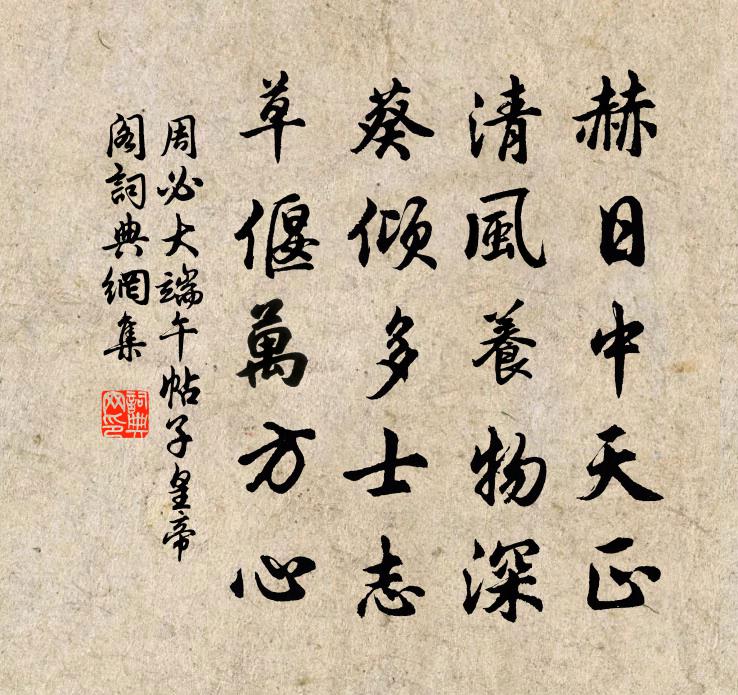 赫日中天正
清風養物深
葵傾多士志
草偃萬方心
周必大端午帖子皇帝
閣詞典網集
詞典
网印